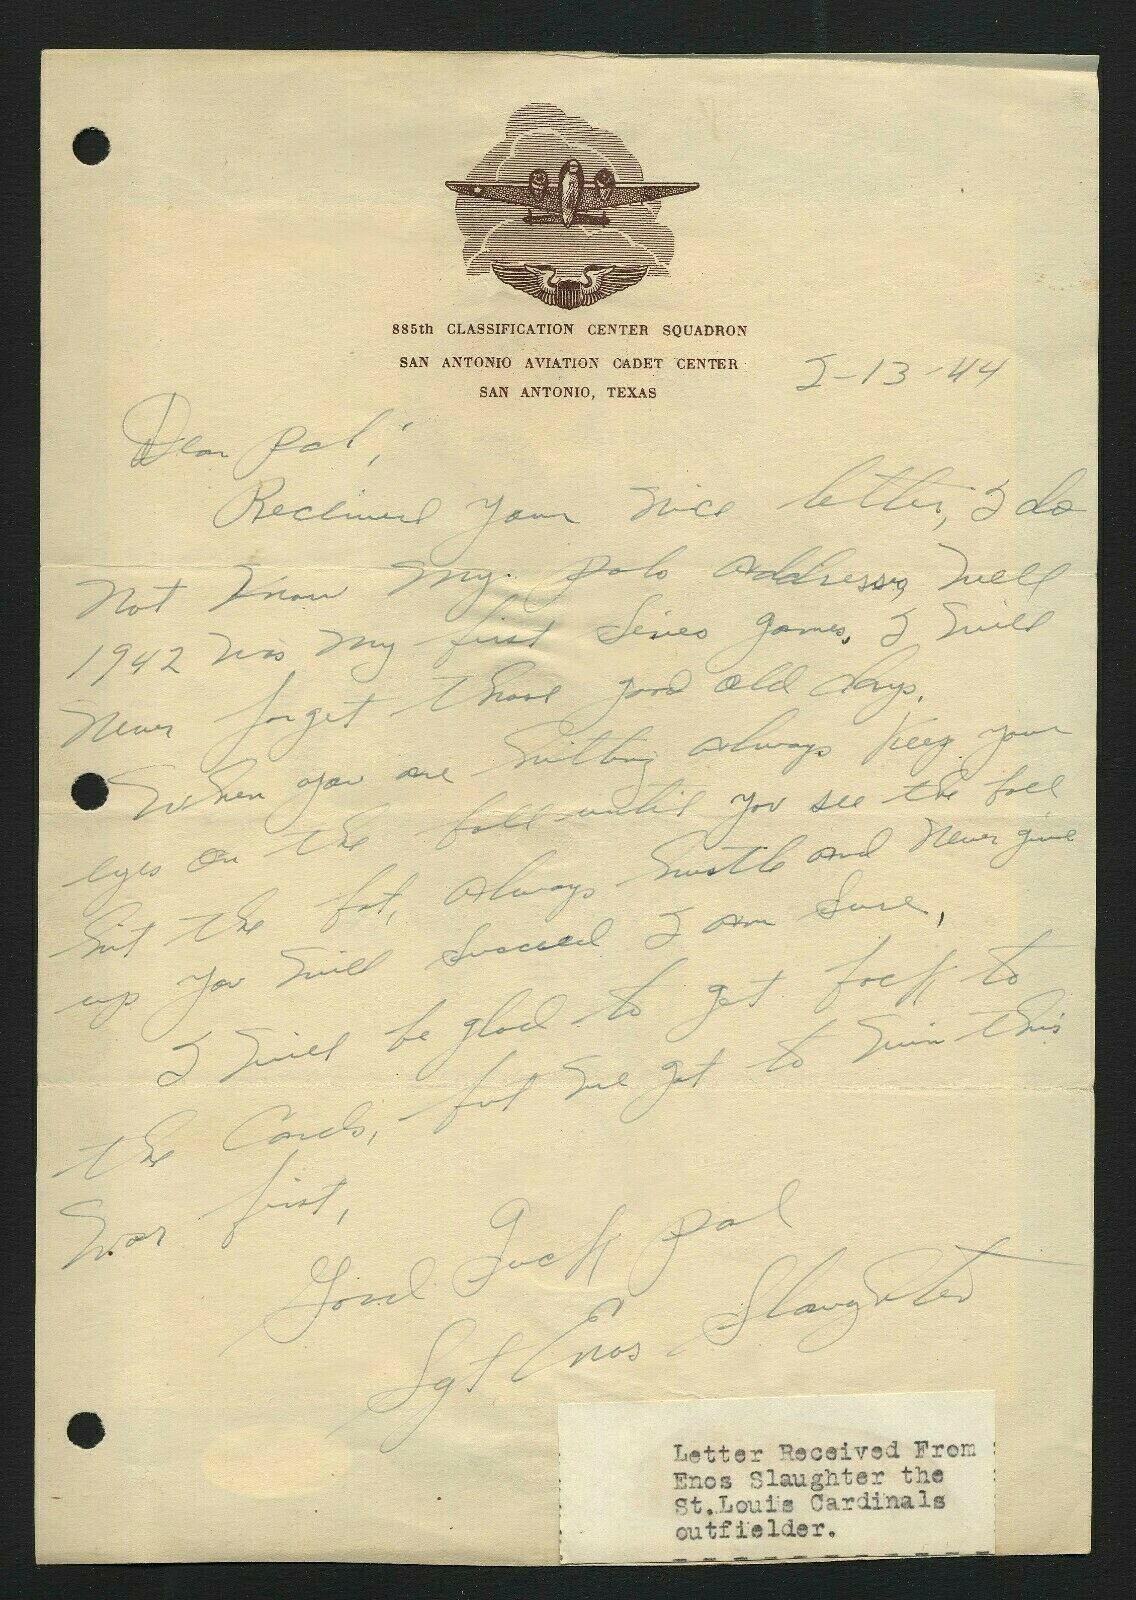 885th CLASSIFICATION CENTER SQUADRON
SAN ANTONIO AVIATION CADET CENTER
SAN ANTONIO, TEXAS
2-13-44
Dear pal,
Received your nice letter, I do
not know my polo address, well
1942 was my first Series games. I will
never forget those good old days.
When you are hitting always keep your
eyes on the ball until you see the ball
hit the bat, always hustle and never give
up you will succeed I am sure,
I will be glad to get back to
the Cards, but we got to win this
war first,
Good Luck pal
Sgt Enos Slaughter
Letter Received From
Enos Slaughter the
St.Louis Cardinals
outfielder.